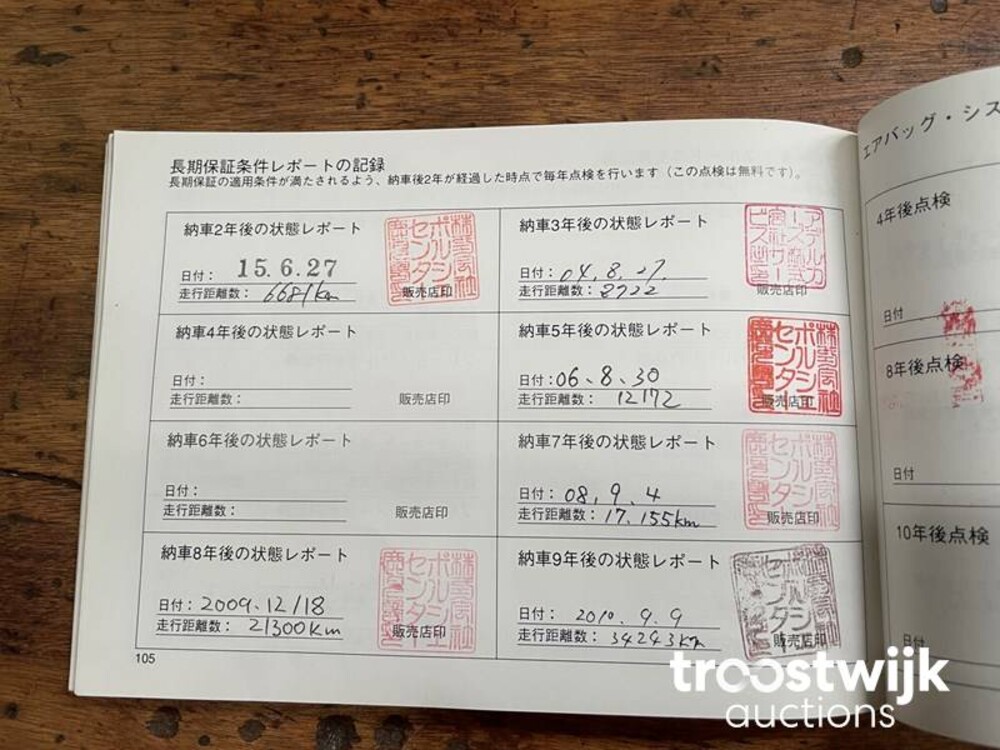 長期保証条件レポートの記録
長期保証の適用条件が満たされるよう、納車後2年が経過した時点で毎年点検を行います（この点検は無料です）。
納車2年後の状態レポート
日付： 15.6.27
走行距離数： 6681km
販売店印
株式会社
ポルシェ
センター
納車3年後の状態レポート
日付： 04.8.27
走行距離数： 8722
販売店印
納車4年後の状態レポート
日付：
走行距離数：
販売店印
納車5年後の状態レポート
日付：06.8.30
走行距離数： 12172
販売店印
株式会社
ポルシェ
センター
納車6年後の状態レポート
日付：
走行距離数：
販売店印
納車7年後の状態レポート
日付： 08.9.4
走行距離数： 17.155km
販売店印
株式会社
ポルシェ
センター
納車8年後の状態レポート
日付：2009.12/18
走行距離数： 21300km
販売店印
株式会社
ポルシェ
センター
納車9年後の状態レポート
日付： 2010.9.9
走行距離数： 34243km
販売店印
株式会社
ポルシェ
センター
105
エアバッグ・シス
4年後点検
日付
8年後点検
日付
10年後点検
日付
troostwijk
auctions